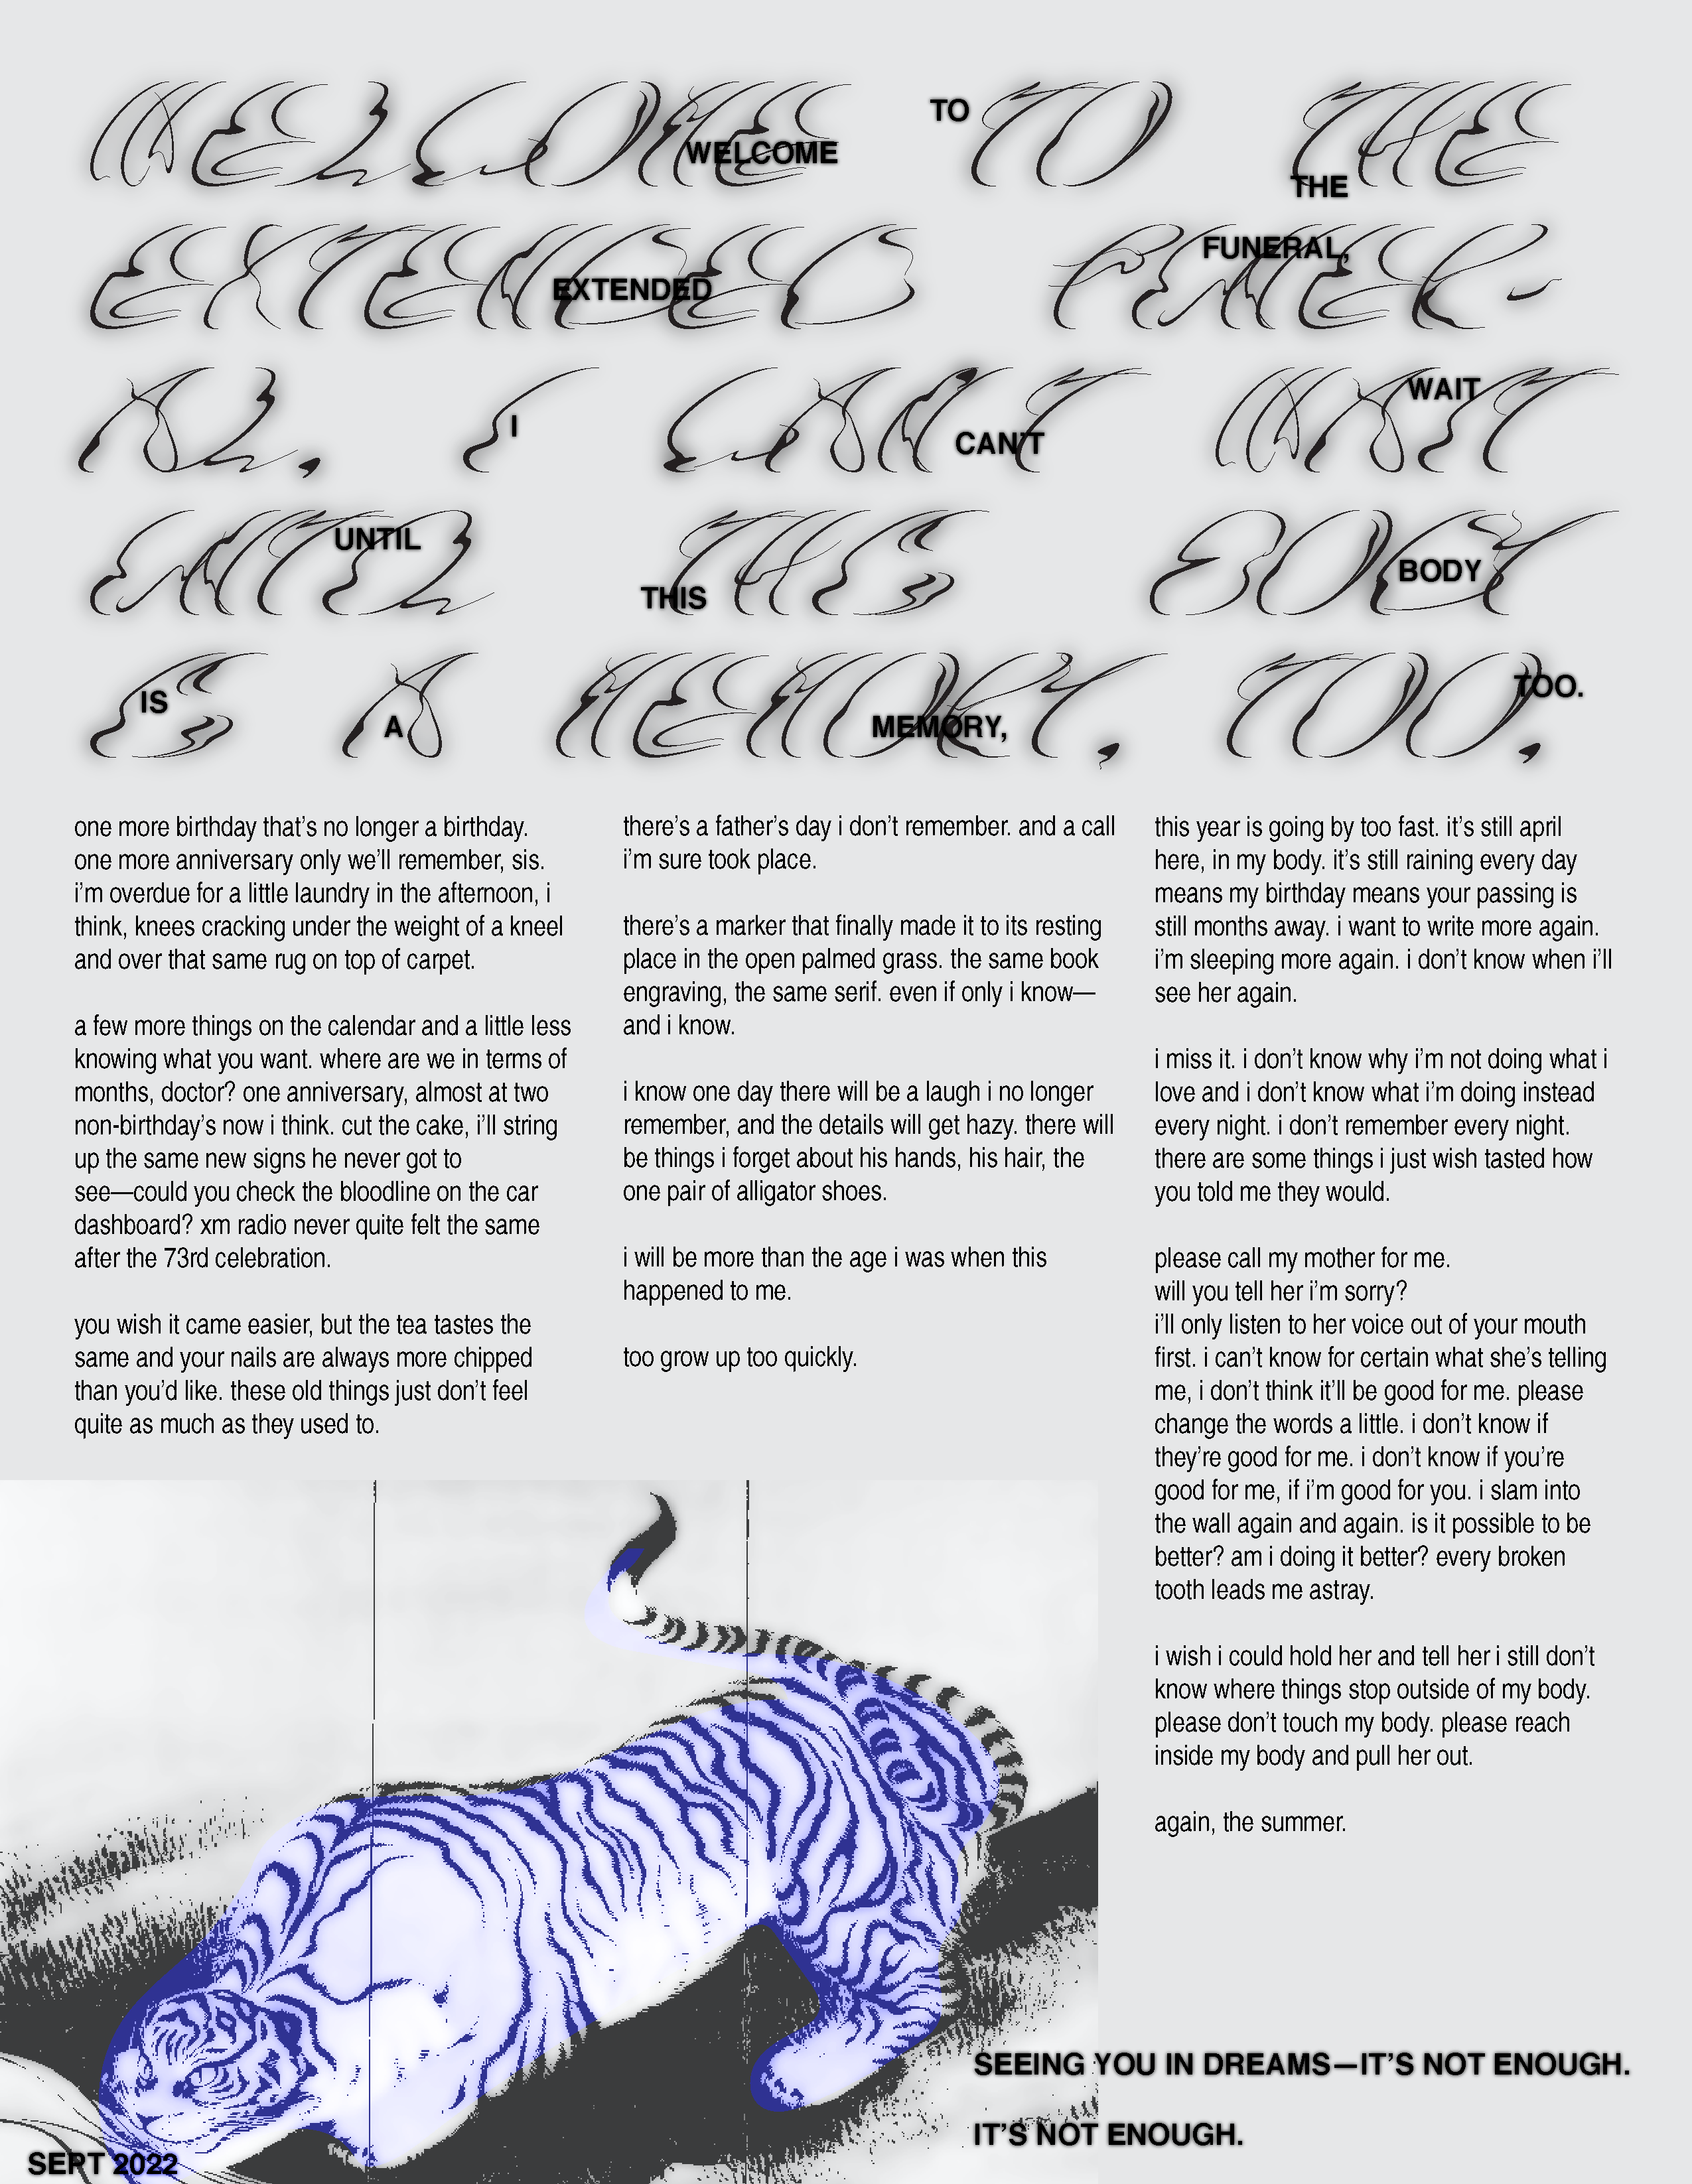 WELCOME TO THE
EXTENDED FUNERAL,
I CAN'T WAIT
UNTIL THIS BODY
IS A MEMORY, TOO.
one more birthday that's no longer a birthday.
one more anniversary only we'll remember, sis.
i'm overdue for a little laundry in the afternoon, i
think, knees cracking under the weight of a kneel
and over that same rug on top of carpet.
a few more things on the calendar and a little less
knowing what you want. where are we in terms of
months, doctor? one anniversary, almost at two
non-birthday's now i think. cut the cake, i'll string
up the same new signs he never got to
see—could you check the bloodline on the car
dashboard? xm radio never quite felt the same
after the 73rd celebration.
you wish it came easier, but the tea tastes the
same and your nails are always more chipped
than you'd like. these old things just don't feel
quite as much as they used to.
there's a father's day i don't remember. and a call
i'm sure took place.
there's a marker that finally made it to its resting
place in the open palmed grass. the same book
engraving, the same serif. even if only i know—
and i know.
i know one day there will be a laugh i no longer
remember, and the details will get hazy. there will
be things i forget about his hands, his hair, the
one pair of alligator shoes.
i will be more than the age i was when this
happened to me.
too grow up too quickly.
this year is going by too fast. it's still april
here, in my body. it's still raining every day
means my birthday means your passing is
still months away. i want to write more again.
i'm sleeping more again. i don't know when i'll
see her again.
i miss it. i don't know why i'm not doing what i
love and i don't know what i'm doing instead
every night. i don't remember every night.
there are some things i just wish tasted how
you told me they would.
please call my mother for me.
will you tell her i'm sorry?
i'll only listen to her voice out of your mouth
first. i can't know for certain what she's telling
me, i don't think it'll be good for me. please
change the words a little. i don't know if
they're good for me. i don't know if you're
good for me, if i'm good for you. i slam into
the wall again and again. is it possible to be
better? am i doing it better? every broken
tooth leads me astray.
i wish i could hold her and tell her i still don't
know where things stop outside of my body.
please don't touch my body. please reach
inside my body and pull her out.
again, the summer.
SEEING YOU IN DREAMS—IT'S NOT ENOUGH.
IT'S NOT ENOUGH.
SEPT 2022